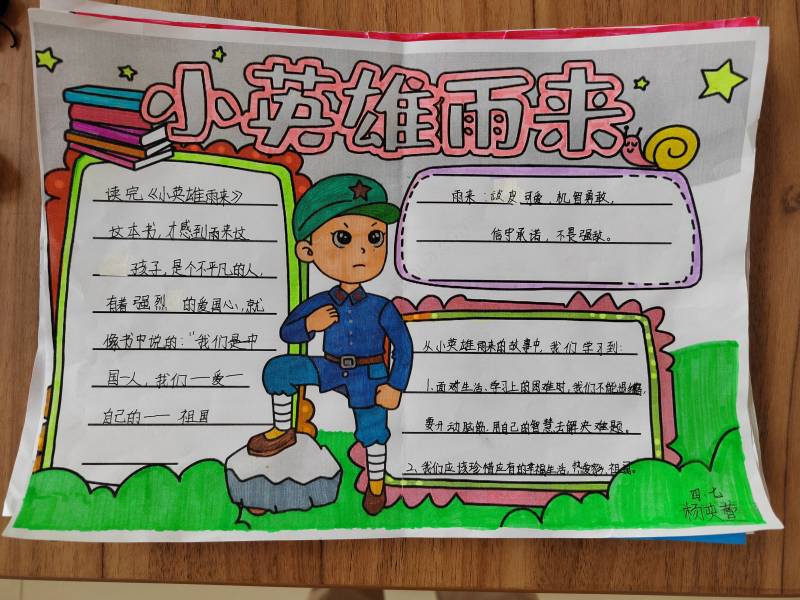 小英雄雨来
读完《小英雄雨来》
这本书,才感到雨来这
孩子,是个不平凡的人,
有着强烈的爱国心,就
像书中说的:“我们是中
国一人,我们一爱一
自己的一一祖国
雨来:调皮可爱,机智勇敢,
信守承诺,不畏强敌。
从小英雄雨来的故事中,我们学习到:
1.面对生活、学习上的困难时,我们不能退缩,
要开动脑筋,用自己的智慧去解决难题。
2.我们应该珍惜应有的幸福生活,热爱祖国。
四.七
杨映蕾